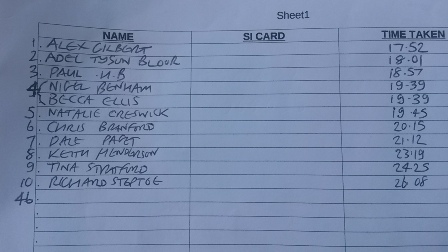 Sheet1
NAME SI CARD TIME TAKEN
1. ALEX GILBERT 17.52
2. ADEL TYSON BLOUR 18.01
3. PAUL H.B 18.57
4 NIGEL BENHAM 19.39
BECCA ELLIS 19.39
5 NATALIE CRESWICK 19 45
6 CHRIS BRANFORD 20.15
7 DALE PAGET 21.12
8 KEITH HENDERSON 23.19
9 TINA STRATFORD 24 25
10 RICHARD STEPTOE 26 08
46